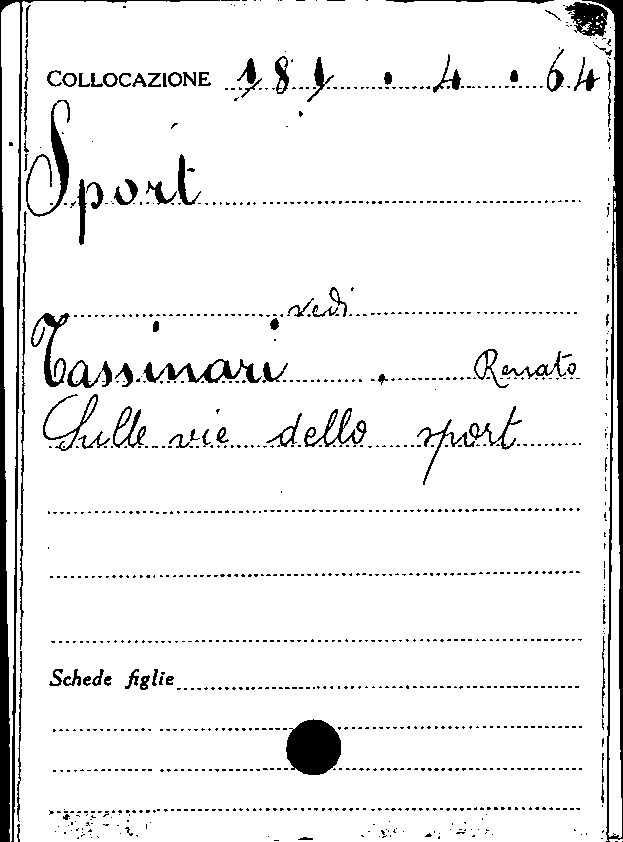 COLLOCAZIONE 181 . 4 . 64
Sport
vedi
Tassinari . Renato
Sulle vie dello sport
Schede figlie